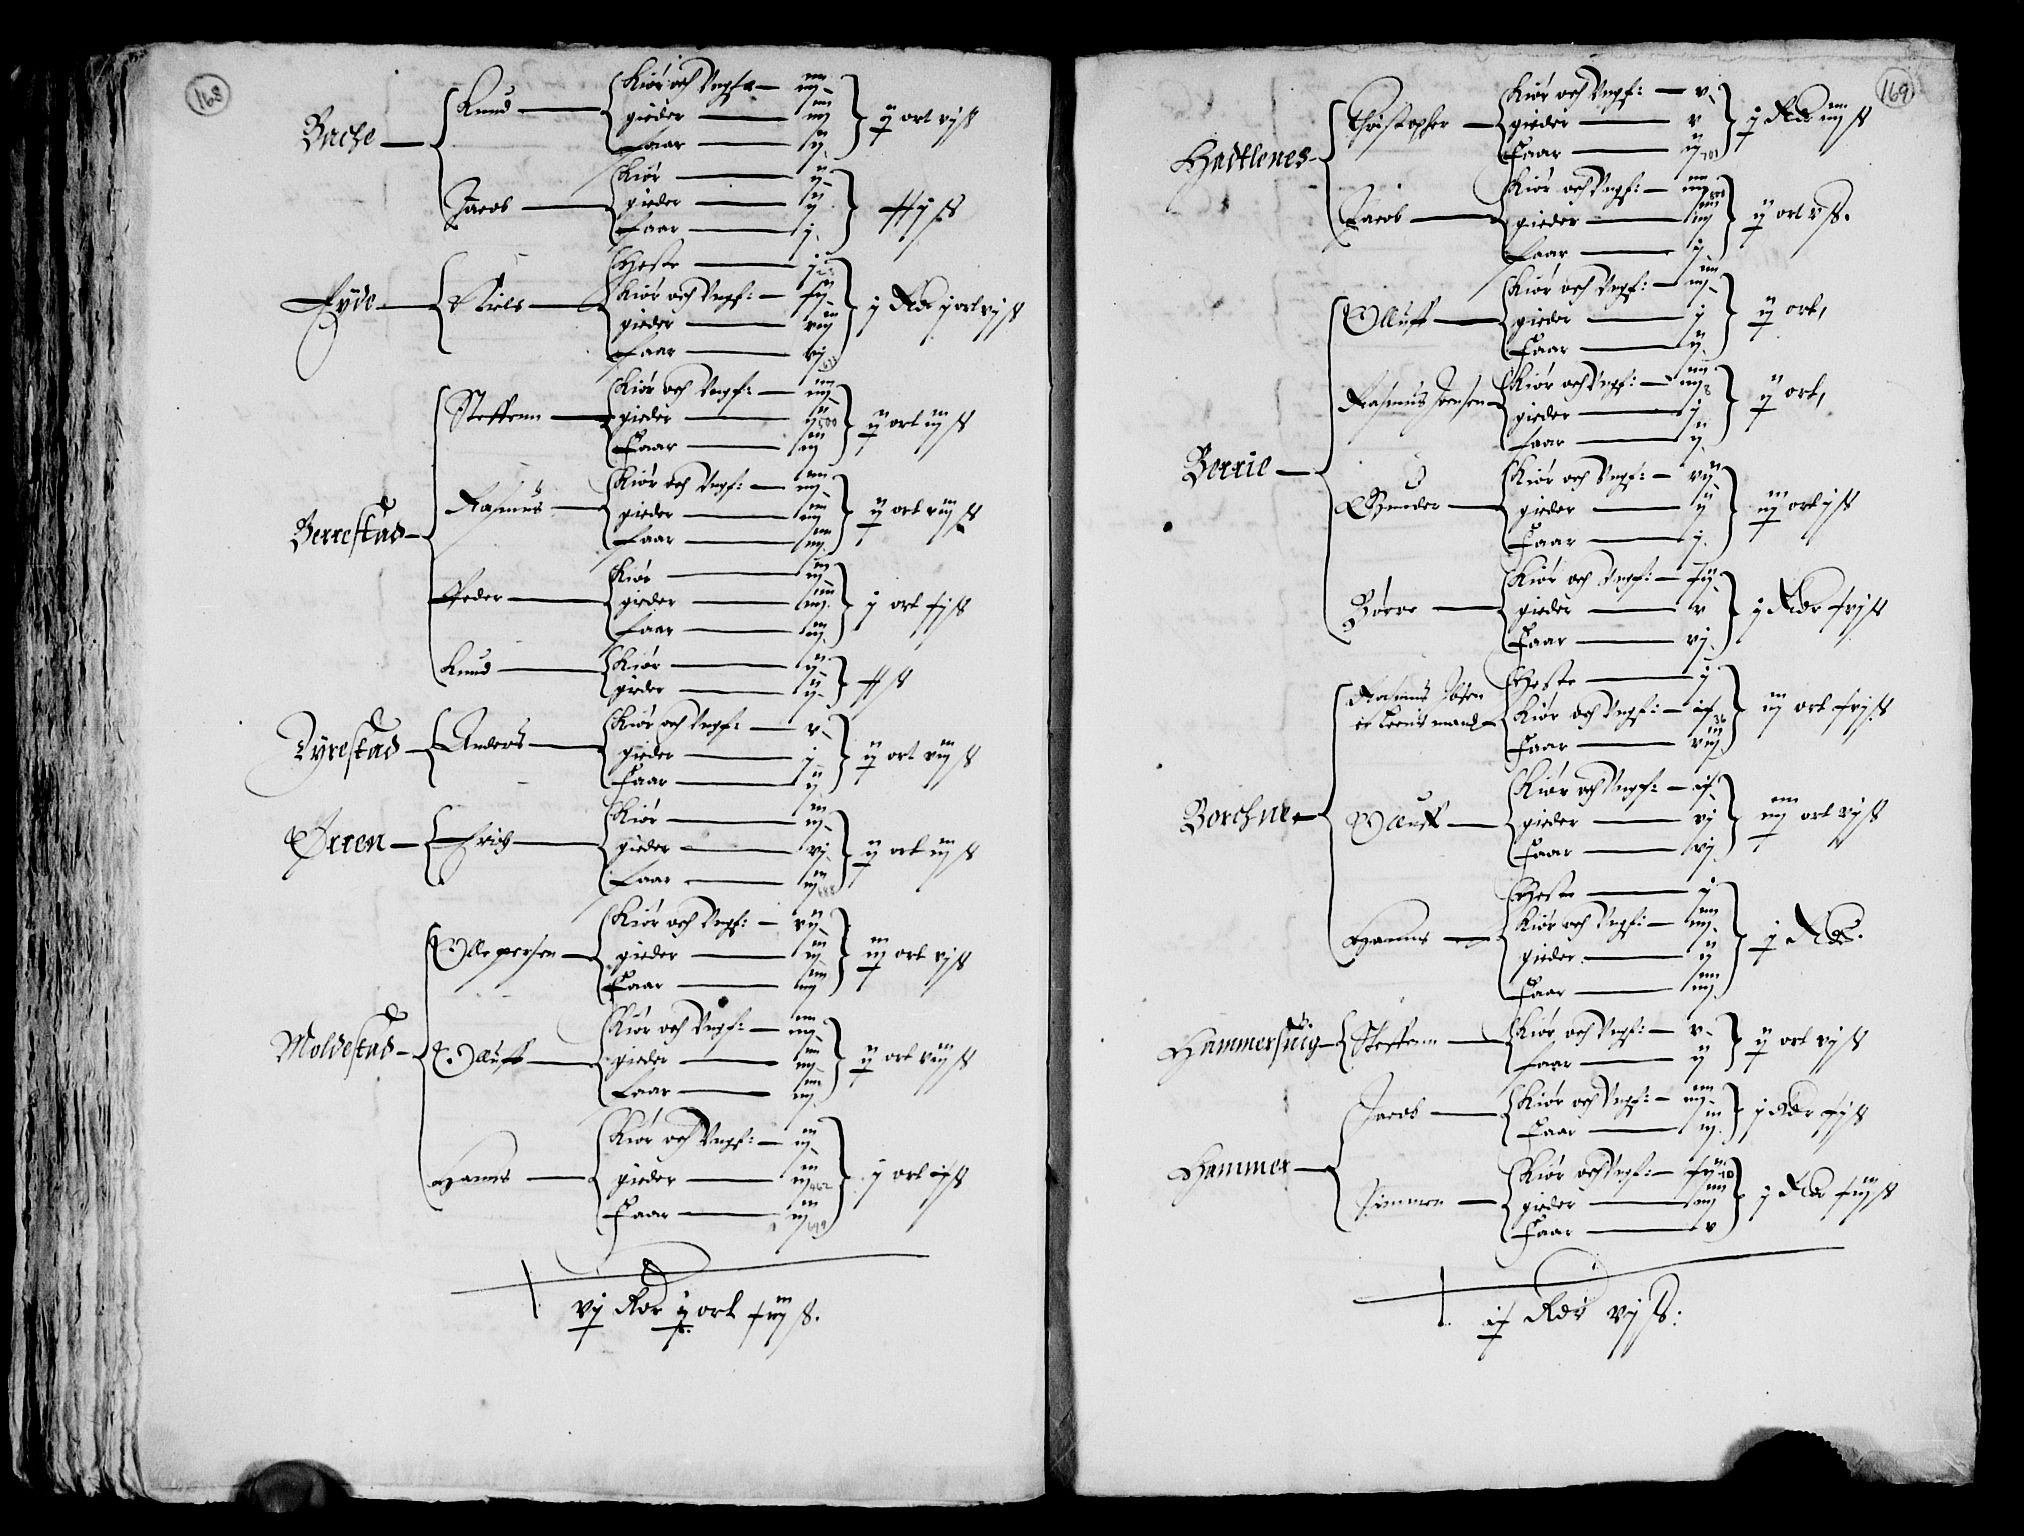 168
Bache — Knud — Kiør och Vngf: — iiij
gieder — iiij
Faar — ij
ij ort vj ß
Jacob — Kiør — ij
gieder — ij
Faar — j
ß
Eyde — Niels — Heste — j
Kiør och Vngf: —
gieder — viij
Faar — vj
j Rdr j ort vj ß
Berrestad — Steffenn — Kiør och Vngf: — iiij
gieder — ij
Faar — iij
ij ort iij ß
Rasmus — Kiør och Vngf: — iiij
gieder — iiij
Faar — iiij
ij ort viij ß
Peder — Kiør — iij
gieder — iiij
Faar — iij
j ort ß
Knud — Kiør — ij
gieder — ij
ß
Dyrestad — Anders — Kiør och Vngf: — v
gieder — j
Faar — ij
ij ort viij ß
Ørren — Erich — Kiør — iij
gieder — vj
Faar — iij
ij ort iij ß
Moldestad — Olle persen — Kiør och Vngf: — vij
gieder — iij
Faar — iiij
iij ort vj ß
Oluff — Kiør och Vngf: — iiij
gieder — iiij
Faar — iiij
ij ort viij ß
Hanns — Kiør och Vngf: — iij
gieder — iij
Faar — iij
j ort ix ß
vj Rdr ij ort ß.
169
Hadtlenes — Christopher — Kiør och Vngf: — v
gieder — v
Faar — ij
j Rdr iiij ß
Jacob — Kiør och Vngf: — iiij
gieder — iiij
Faar — j
ij ort v ß.
Berrie — Oluff — Kiør och Vngf: — iiij
gieder — j
Faar — ij
ij ort,
Rasmus Joensen — Kiør och Vngf: — iiij
gieder — j
Faar — ij
ij ort,
Gunder — Kiør och Vngf: — vij
gieder — ij
Faar — j
iij ort j ß
Børre — Kiør och Vngf: —
gieder — v
Faar — vj
j Rdr xvj ß
Borchne — Rasmus Ibsen — Heste — j
er Leens mand — Kiør och Vngf: — ix
Faar — viij
iij ort xvj ß
Oluff — Kiør och Vngf: — ix
gieder — vj
Faar — vj
iiij ort vj ß
Hanns — Heste — j
Kiør och Vngf: — iiij
gieder — ij
Faar — iiij
j Rdr.
Hammersuig — Steffenn — Kiør och Vngf: — v
Faar — ij
ij ort vj ß
Hammer — Jacob — Kiør och Vngf: — iiij
Faar — iij
j Rdr ß
Simmen — Kiør och Vngf: —
gieder — iiij
Faar — v
j Rdr ß
ix Rdr vj ß: